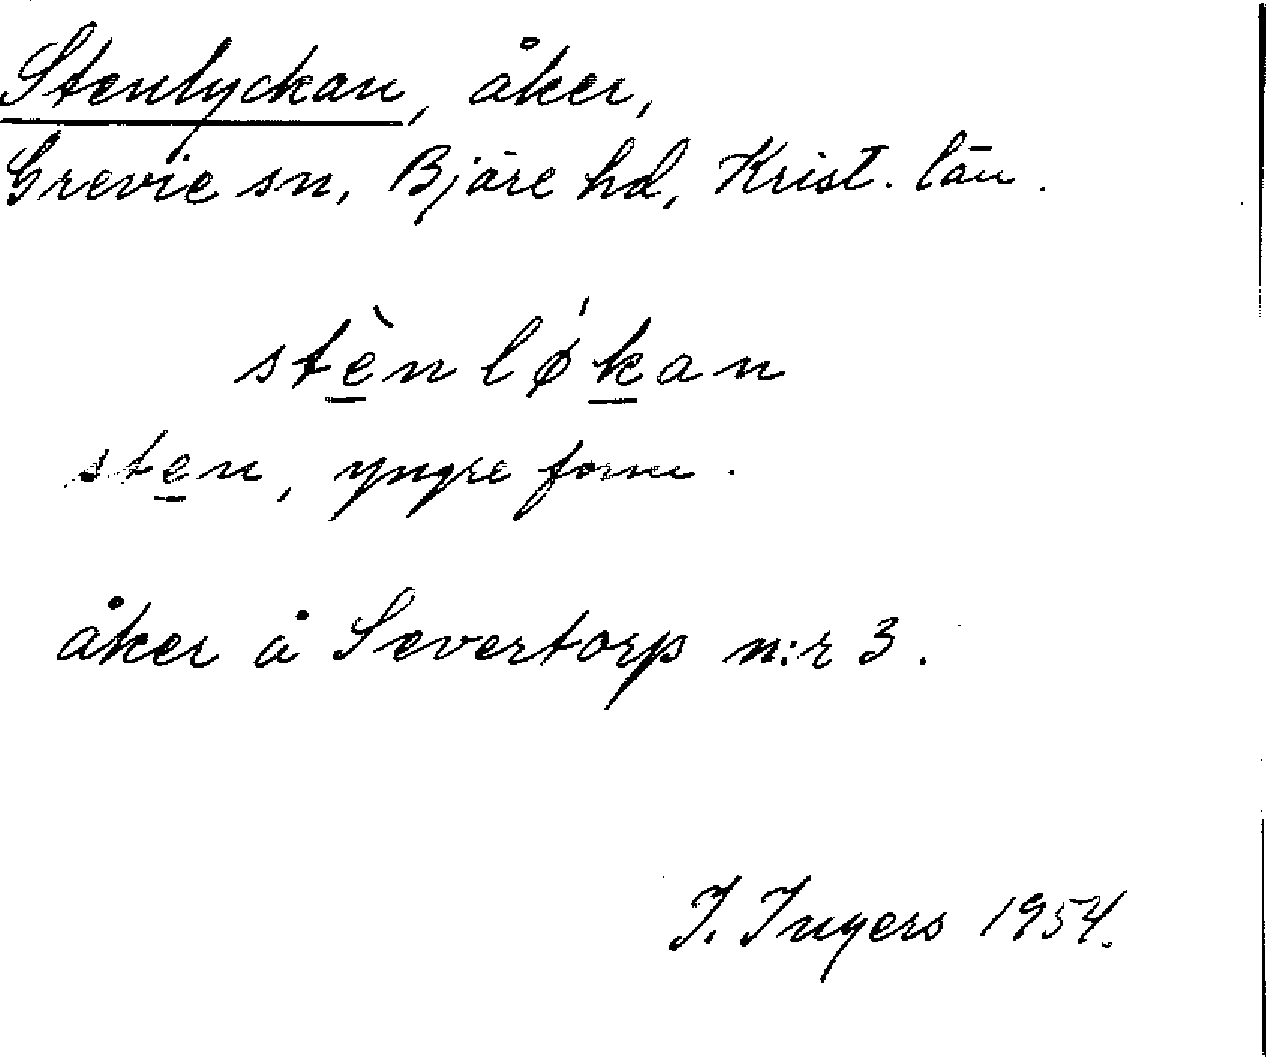 Stenlyckan, åker,
Grevie sn, Bjäre hd, Krist. län.
stè̲nlǿk̲an
ste̲n, yngre form.
åker å Severtorp n:r 3.
I. Ingers 1954.